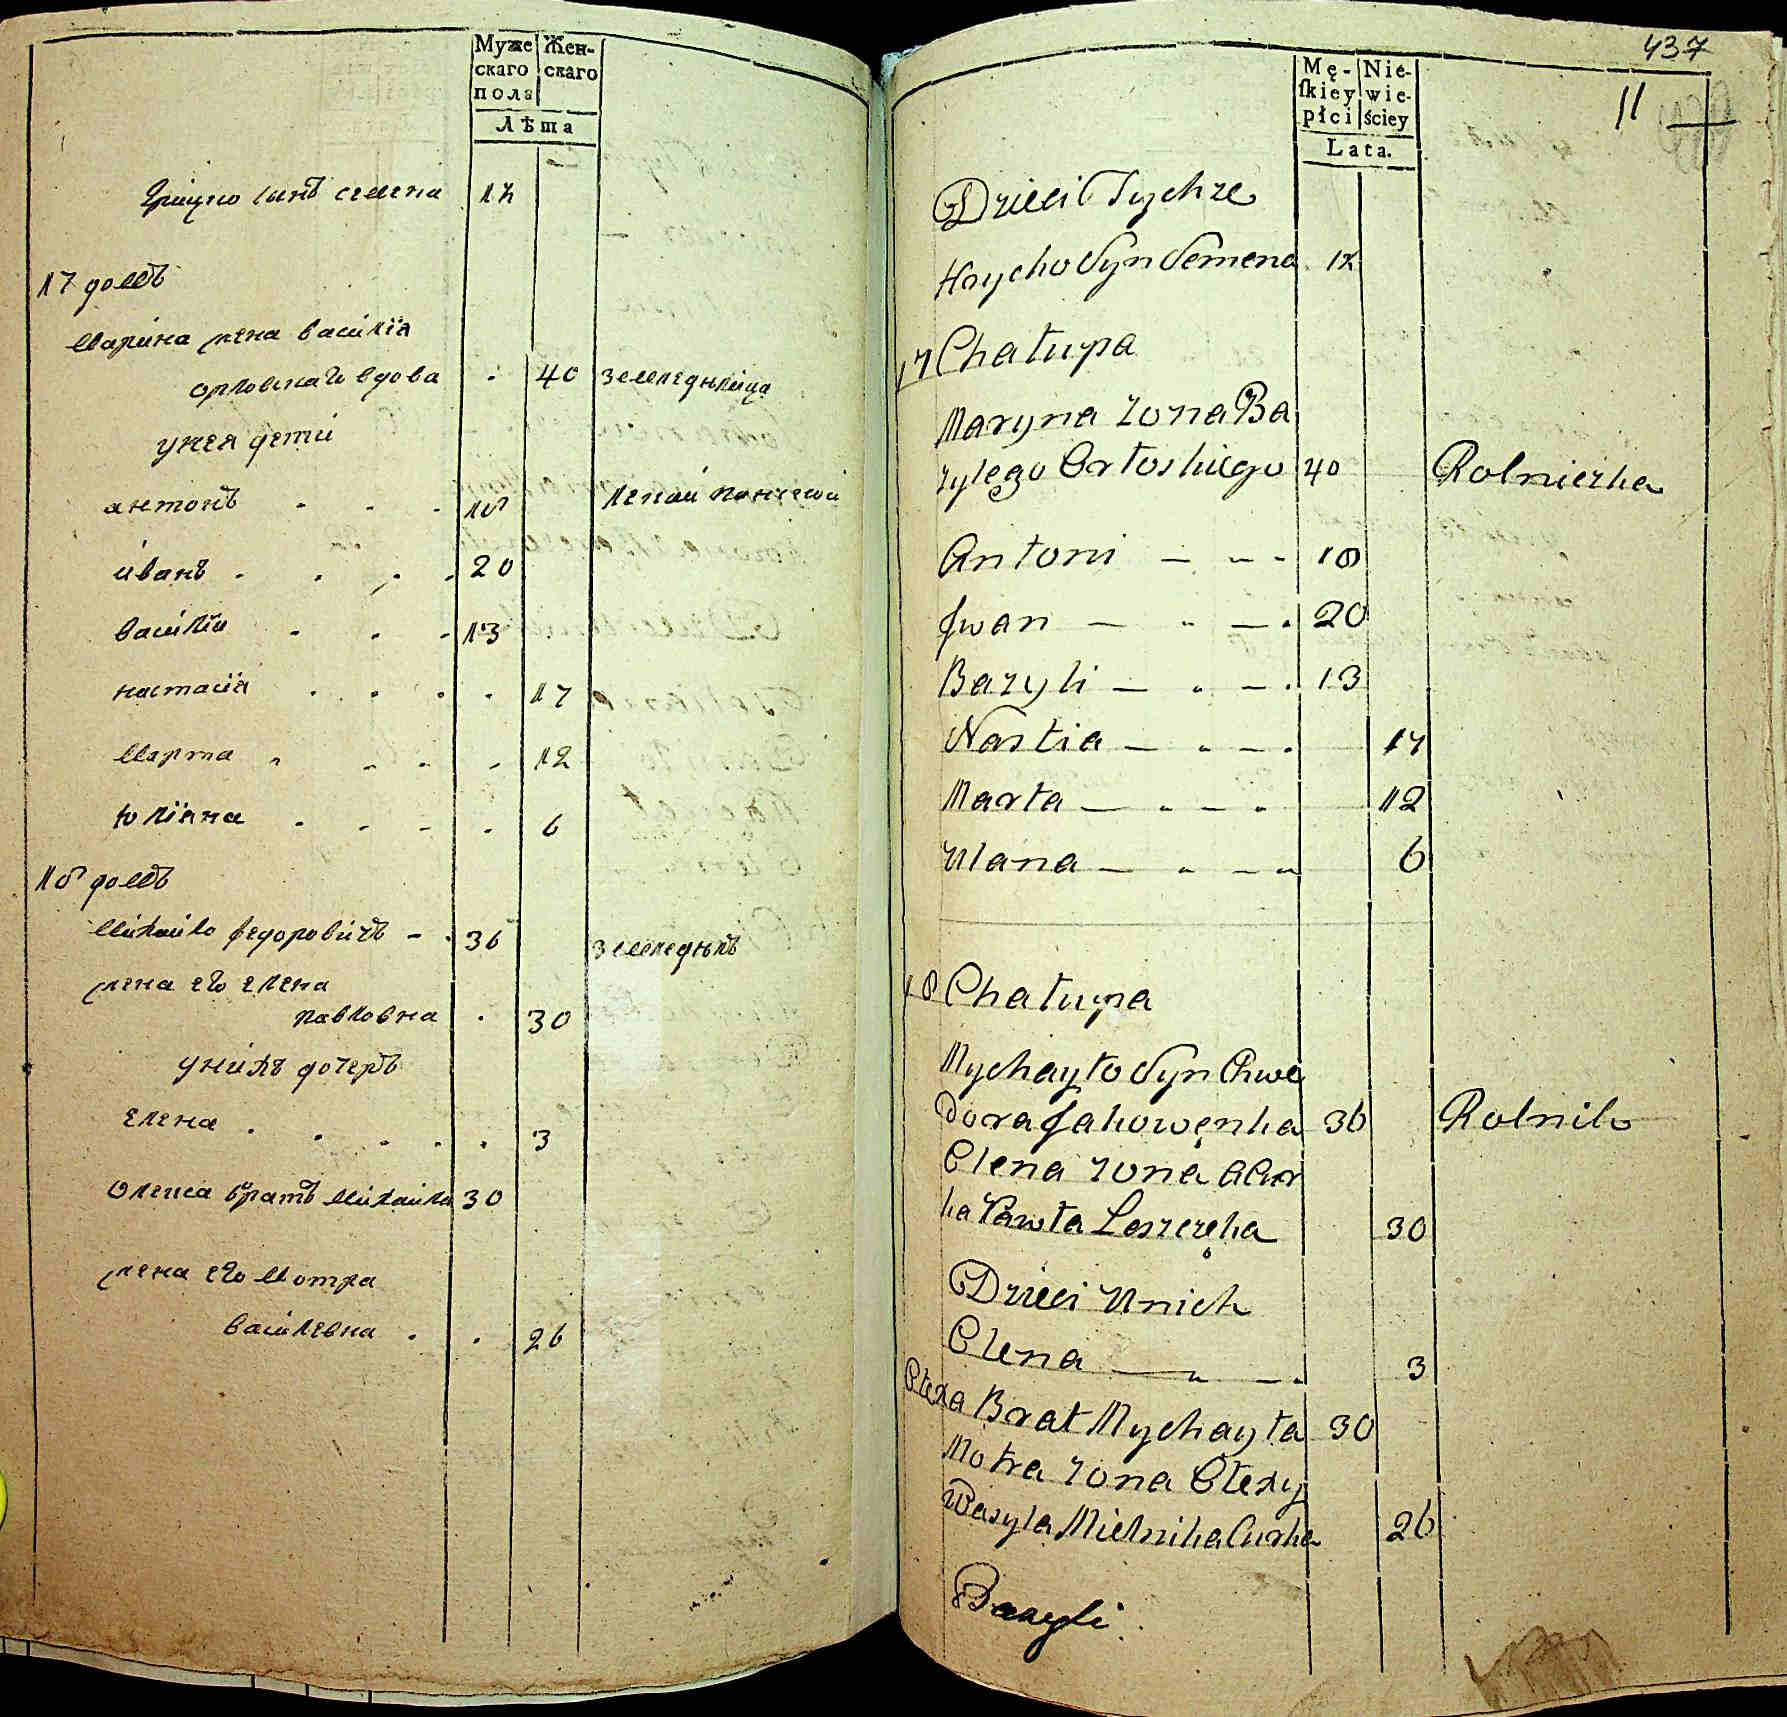 Муже Жен-
скаго скаго
пола
Лѣта
Грицко сынъ семена 12
17 домъ
Марина жена василіа
орловскаго вдова . 40 земледѣлица
унея дети
антонъ . . . 18
иванъ . . . . 20
василіи . . . 13
настасіа . . . . 17
Марта . . . . 12
юліана . . . . 6
18 домъ
Михаило федоровичъ - . 36 земледѣлъ
жена его елена
павловна . 30
унихъ дочеръ
елена . . . . . 3
олекса братъ михаила 30
жена его мотра
василевна . . 26
437
11
Mę- Nie-
ſkiey wie-
płci ściey
Lata.
Dzieci Tychze
Hrycko Syn Semena 12
17 Chałupa
Maryna zona Ba
zylego Orłoskiego 40 Rolniczka
Antoni - - - 18
Jwan - - - . 20
Bazyli - - - . 13
Nastia - - - . 17
Marta - - - . 12
Ulana - - - - 6
18 Chałupa
Mychayło Syn Chwe
dora Jakowęnka 36 Rolnik
Elena zona a Cur
ka Pawła Leszczęka 30
Dzieci Unich
Elena - - - . 3
Ołexa Brat Mychayła 30
Motra zona Ołexy
Wasyla Mielnika Curka 26
Bazyli